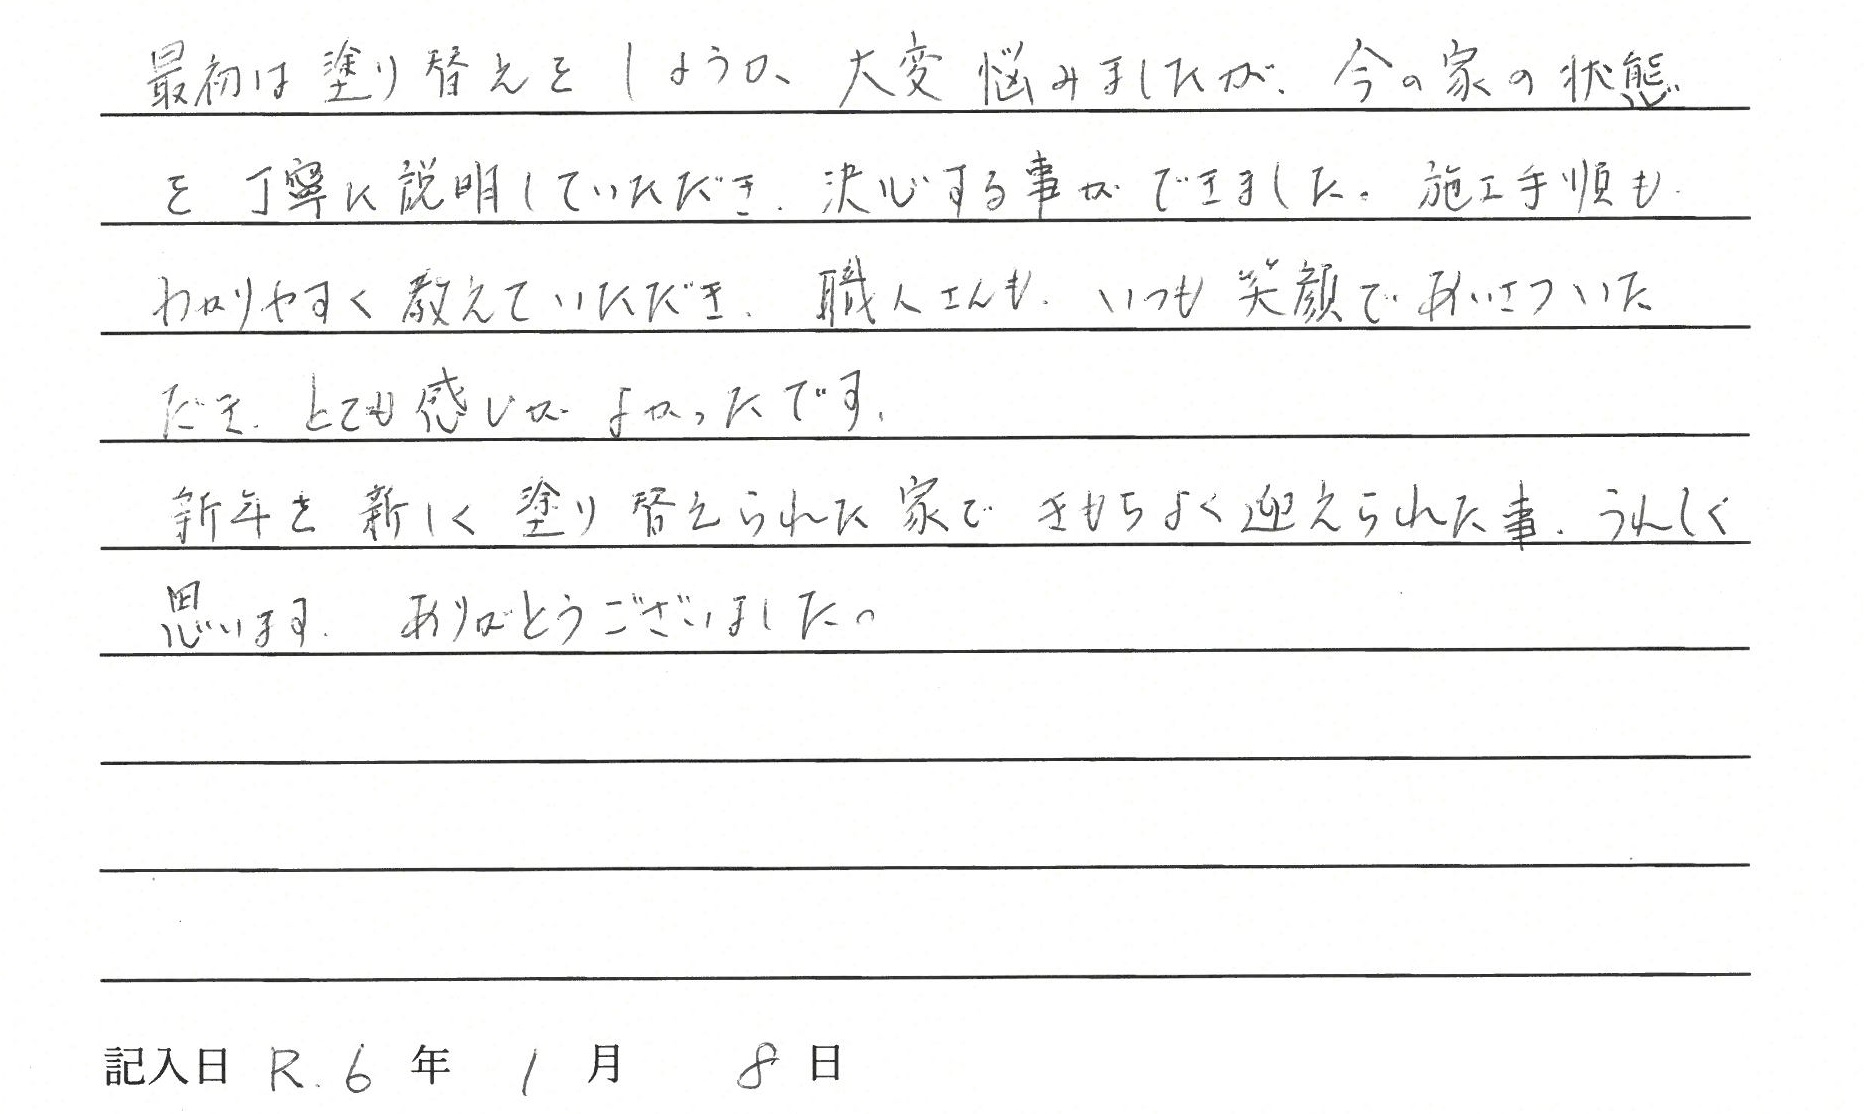 最初は塗り替えをしようか、大変悩みましたが、今の家の状態
を丁寧に説明していただき、決心する事ができました。施工手順も
わかりやすく教えていただき、職人さんも、いつも笑顔であいさついた
だき、とても感じがよかったです。
新年を新しく塗り替えられた家できもちよく迎えられた事、うれしく
思います。ありがとうございました。
記入日 R.6年 1月 8日